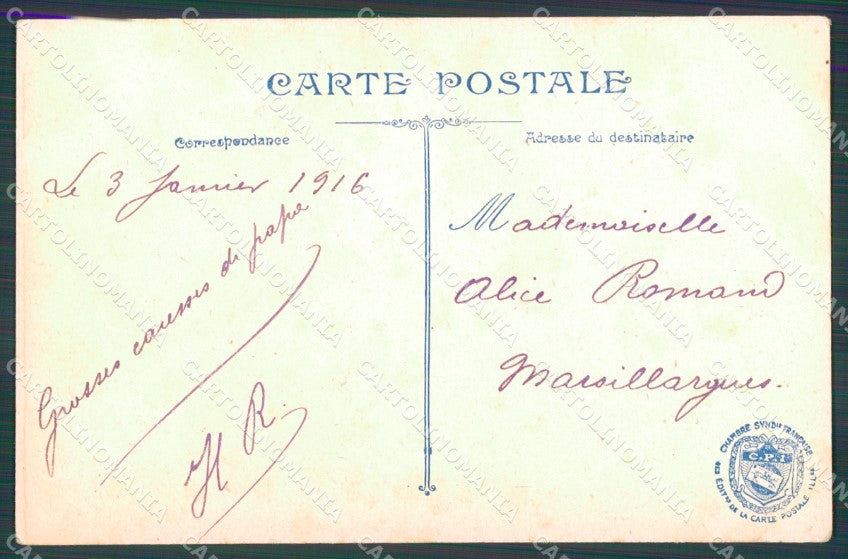 CARTE POSTALE
Correspondance
Adresse du destinataire
Le 3 Janvier 1916
Grosses caresses de papa
H R.
Mademoiselle
Alice Romand
Marsillargues.
CHAMBRE SYNDle FRANÇAISE
C.P.I
DE LA CARTE POSTALE ILLée
CARTOLINOMANIA